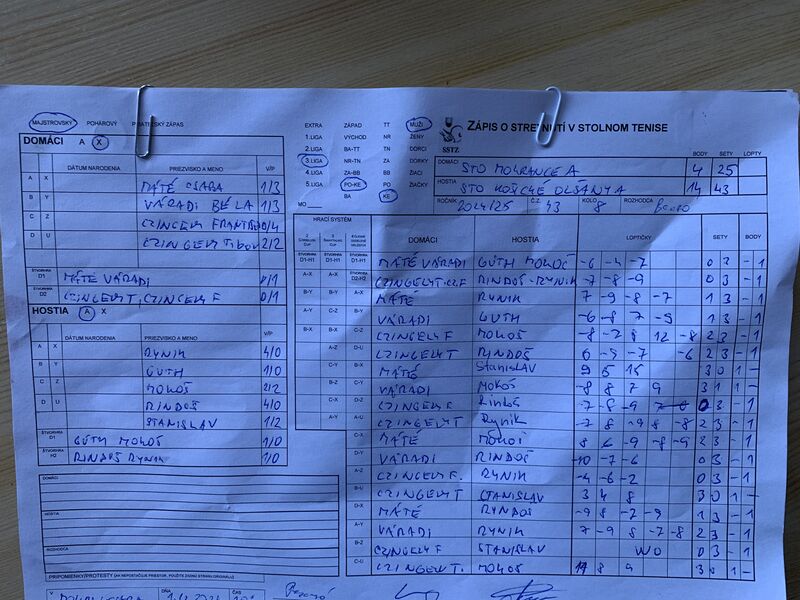 MAJSTROVSKÝ POHÁROVÝ PRIATEĽSKÝ ZÁPAS
EXTRA ZÁPAD TT MUŽI
1.LIGA VÝCHOD NR ŽENY
2.LIGA BA-TT TN DORCI
3.LIGA NR-TN ZA DORKY
4.LIGA ZA-BB BB ŽIACI
5.LIGA PO-KE PO ŽIAČKY
BA KE
MO
SSTZ
ZÁPIS O STRETNUTÍ V STOLNOM TENISE
BODY SETY LOPTY
DOMÁCI STO MOKRANCE A 4 25
HOSTIA STO KOŠICKÉ OĽŠANY A 14 43
ROČNÍK 2024/25 Č.Z. 43 KOLO 8 ROZHODCA
DOMÁCI A X
DÁTUM NARODENIA PRIEZVISKO A MENO V/P
A X MÁTÉ CSABA 1/3
B Y VÁRADI BÉLA 1/3
C Z CZINGELY FRANTIŠEK 0/4
D U CZINGELY TIBOR 2/2
ŠTVORHRA D1 MÁTÉ VÁRADI 0/1
ŠTVORHRA D2 CZINGELY T, CZINGELY F 0/1
HOSTIA A X
DÁTUM NARODENIA PRIEZVISKO A MENO V/P
A X RYNIK 4/0
B Y GUTH 1/0
C Z MOKOŠ 2/2
D U RINDOŠ 4/0
STANISLAV 1/2
ŠTVORHRA H1 GÚTH MOKOŠ 1/0
ŠTVORHRA H2 RINDOŠ RYNIK 1/0
DOMÁCI
HOSTIA
ROZHODCA
PRIPOMIENKY/PROTESTY (AK NEPOSTAČUJE PRIESTOR, POUŽITE ZADNÚ STRANU ORIGINÁLU)
HRACÍ SYSTÉM
DOMÁCI HOSTIA LOPTIČKY SETY BODY
D1-H1 D1-H1 D1-H1 MÁTÉ VÁRADI GÚTH MOKOŠ -6 -4 -7 0 3 - 1
A-X D2-H2 CZINGELY T. CZ.F RINDOŠ-RYNIK -7 -8 -9 0 3 - 1
B-Y B-Y A-X MÁTÉ RYNIK 7 -9 -8 -7 1 3 - 1
A-Y C-Z B-Y VÁRADI GUTH -6 -8 7 -9 1 3 - 1
B-X B-X C-Z CZINGELY F MOKOŠ -8 -2 8 12 -8 2 3 - 1
A-Z D-U CZINGELY T RINDOŠ 6 -9 -7 -6 2 3 - 1
C-Y B-X MÁTÉ Stanislav 9 5 15 3 0 1 -
B-Z C-Y VÁRADI MOKOŠ -8 8 7 9 3 1 1 -
C-X D-Z CZINGELY F Rindoš -7 -8 -9 0 3 - 1
A-Y A-U CZINGELY T Rynik -7 8 -9 8 -8 2 3 - 1
C-X MÁTÉ MOKOŠ 8 6 -9 -8 -9 2 3 - 1
D-Y VÁRADI RINDOŠ -10 -7 -6 0 3 - 1
A-Z CZINGELY F. RYNIK -4 -6 -2 0 3 - 1
B-U CZINGELY T STANISLAV 3 4 8 3 0 1 -
D-X MÁTÉ RYNDOŠ -9 8 -7 -9 1 3 - 1
A-Y VÁRADI RYNIK 7 -9 8 -7 -8 2 3 - 1
B-Z CZINGELY F STANISLAV WO 0 3 - 1
C-U CZINGELY T. MOKOŠ 8 9 3 0 1 -
V DŇA